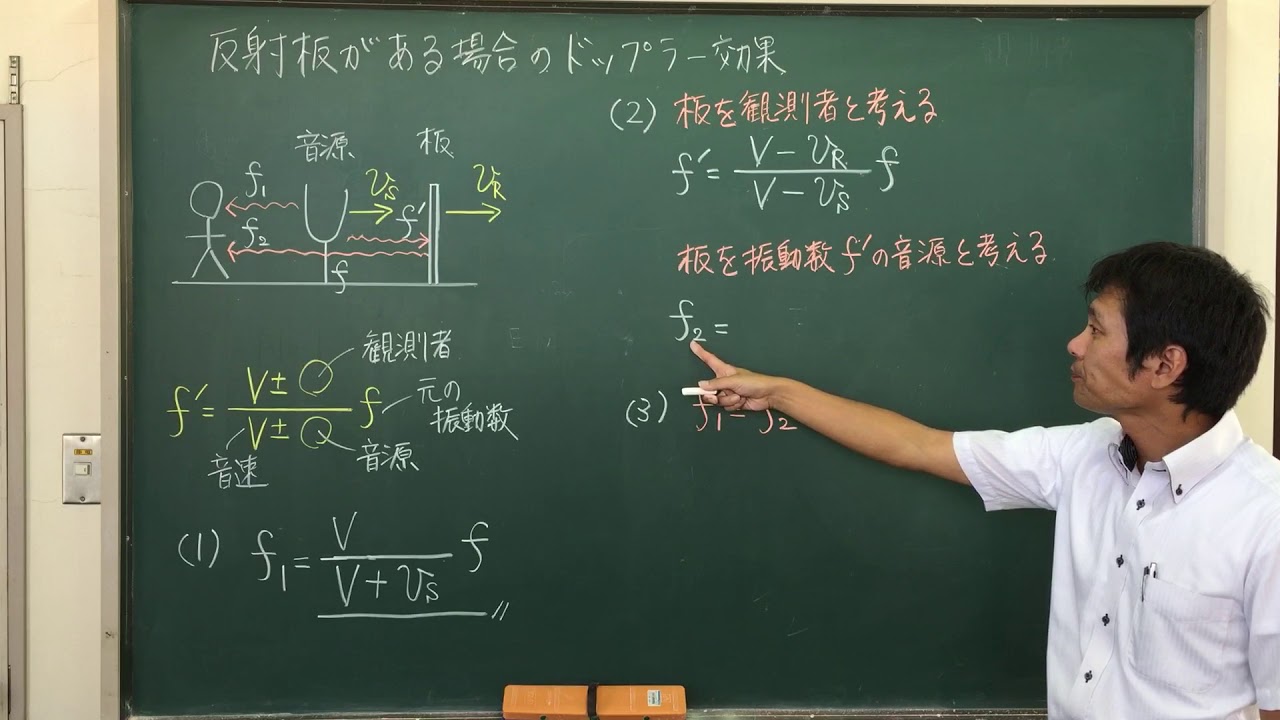 反射板がある場合のドップラー効果
音源 板
f₁ v_S f' v_R
f₂
f
f' = (V ± ○)/(V ± ○) f
観測者
元の
振動数
音源
音速
(1) f₁ = V/(V + v_S) f
(2) 板を観測者と考える
f' = (V − v_R)/(V − v_S) f
板を振動数f'の音源と考える
f₂ =
(3) f₁ − f₂